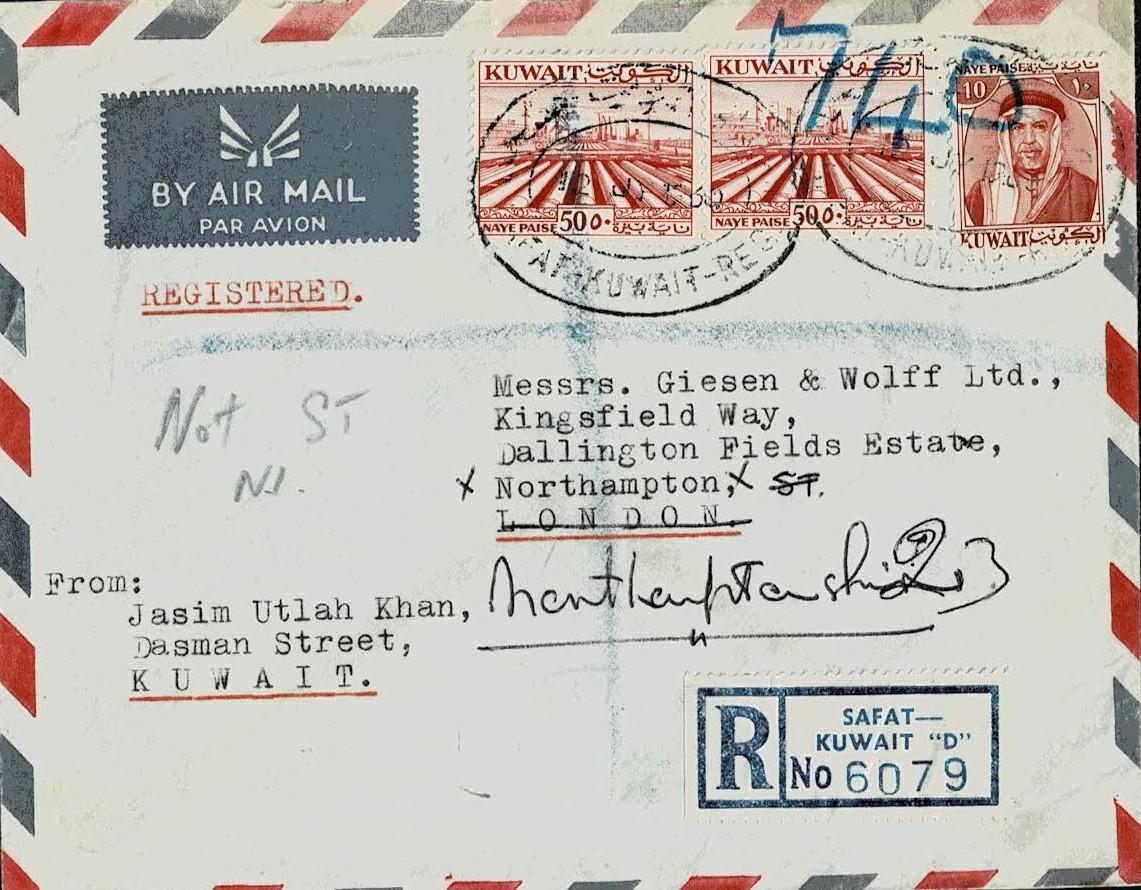 740
KUWAIT الكويت
NAYE PAISE 50 ٥٠ نايه بيزة
KUWAIT الكويت
NAYE PAISE 50 ٥٠ نايه بيزة
NAYE PAISE نايه بيزة
10 ١٠
KUWAIT الكويت
BY AIR MAIL
PAR AVION
KUWAIT-REG
REGISTERED.
Not ST
Messrs. Giesen & Wolff Ltd.,
Kingsfield Way,
Dallington Fields Estate,
x Northampton,x ST.
LONDON.
Northamptonshire
From:
Jasim Utlah Khan,
Dasman Street,
KUWAIT.
R
SAFAT—
KUWAIT "D"
No 6079